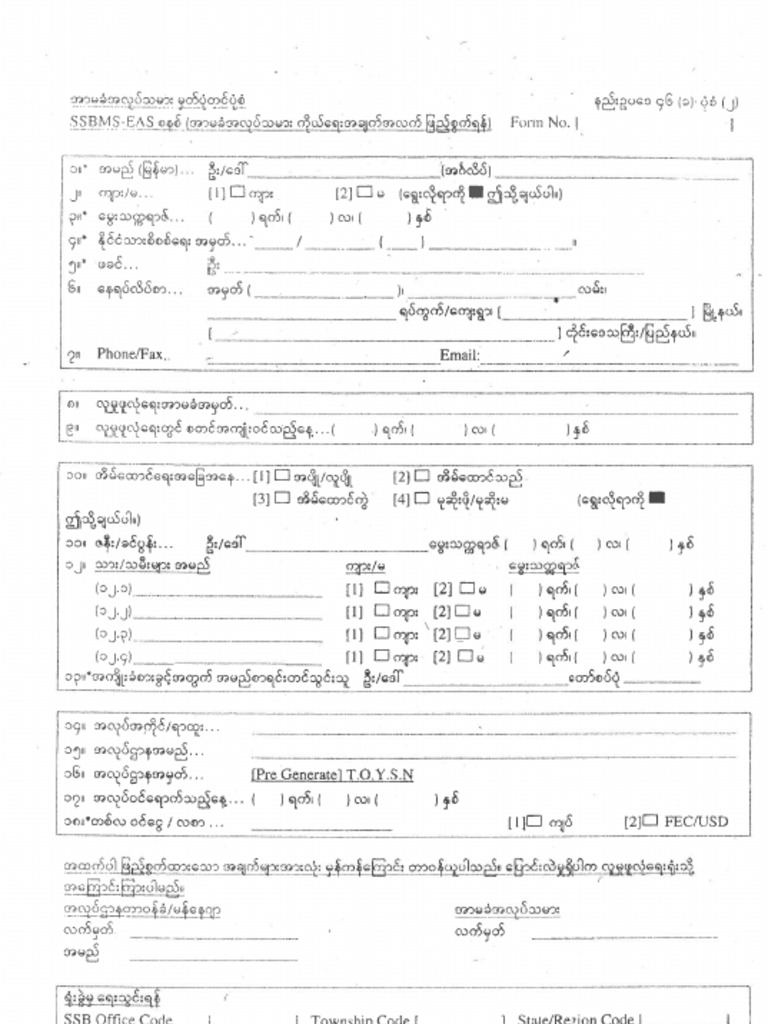 အာမခံအလုပ်သမား မှတ်ပုံတင်ပုံစံ နည်းဥပဒေ ၄၆ (ခ)၊ ပုံစံ (၂)
SSBMS-EAS စနစ် (အာမခံအလုပ်သမား ကိုယ်ရေးအချက်အလက် ဖြည့်စွက်ရန်) Form No. [ ]
၁။* အမည် (မြန်မာ)... ဦး/ဒေါ် (အင်္ဂလိပ်)
၂။ ကျား/မ... [1] □ ကျား [2] □ မ (ရွေးလိုရာကို ■ ဤသို့ချယ်ပါ။)
၃။* မွေးသက္ကရာဇ်... ( ) ရက်၊ ( ) လ၊ ( ) နှစ်
၄။* နိုင်ငံသားစိစစ်ရေး အမှတ်... / ( ) ။
၅။* ဖခင်... ဦး
၆။ နေရပ်လိပ်စာ... အမှတ် ( )၊ လမ်း၊
ရပ်ကွက်/ကျေးရွာ၊ [ ] မြို့နယ်။
[ ] တိုင်းဒေသကြီး/ပြည်နယ်။
၇။ Phone/Fax.. Email:
၈။ လူမှုဖူလုံရေးအာမခံအမှတ်...
၉။ လူမှုဖူလုံရေးတွင် စတင်အကျုံးဝင်သည့်နေ့...( ) ရက်၊ ( ) လ၊ ( ) နှစ်
၁၀။ အိမ်ထောင်ရေးအခြေအနေ... [1] □ အပျို/လူပျို [2] □ အိမ်ထောင်သည်
[3] □ အိမ်ထောင်ကွဲ [4] □ မုဆိုးဖို/မုဆိုးမ (ရွေးလိုရာကို ■
ဤသို့ချယ်ပါ။)
၁၁။ ဇနီး/ခင်ပွန်း... ဦး/ဒေါ် မွေးသက္ကရာဇ် ( ) ရက်၊ ( ) လ၊ ( ) နှစ်
၁၂။ သား/သမီးများ အမည် ကျား/မ မွေးသက္ကရာဇ်
(၁၂.၁) [1] □ ကျား [2] □ မ ( ) ရက်၊ ( ) လ၊ ( ) နှစ်
(၁၂.၂) [1] □ ကျား [2] □ မ ( ) ရက်၊ ( ) လ၊ ( ) နှစ်
(၁၂.၃) [1] □ ကျား [2] □ မ ( ) ရက်၊ ( ) လ၊ ( ) နှစ်
(၁၂.၄) [1] □ ကျား [2] □ မ ( ) ရက်၊ ( ) လ၊ ( ) နှစ်
၁၃။*အကျိုးခံစားခွင့်အတွက် အမည်စာရင်းတင်သွင်းသူ ဦး/ဒေါ် တော်စပ်ပုံ
၁၄။ အလုပ်အကိုင်/ရာထူး...
၁၅။ အလုပ်ဌာနအမည်...
၁၆။ အလုပ်ဌာနအမှတ်... [Pre Generate] T.O.Y.S.N
၁၇။ အလုပ်ဝင်ရောက်သည့်နေ့... ( ) ရက်၊ ( ) လ၊ ( ) နှစ်
၁၈။*တစ်လ ဝင်ငွေ / လစာ ... [1] □ ကျပ် [2] □ FEC/USD
အထက်ပါ ဖြည့်စွက်ထားသော အချက်များအားလုံး မှန်ကန်ကြောင်း တာဝန်ယူပါသည်။ ပြောင်းလဲမှုရှိပါက လူမှုဖူလုံရေးရုံးသို့
အကြောင်းကြားပါမည်။
အလုပ်ဌာနတာဝန်ခံ/မန်နေဂျာ အာမခံအလုပ်သမား
လက်မှတ် လက်မှတ်
အမည်
ရုံးခွဲမှ ရေးသွင်းရန်
SSB Office Code [ ] Township Code [ ] State/Region Code [ ]